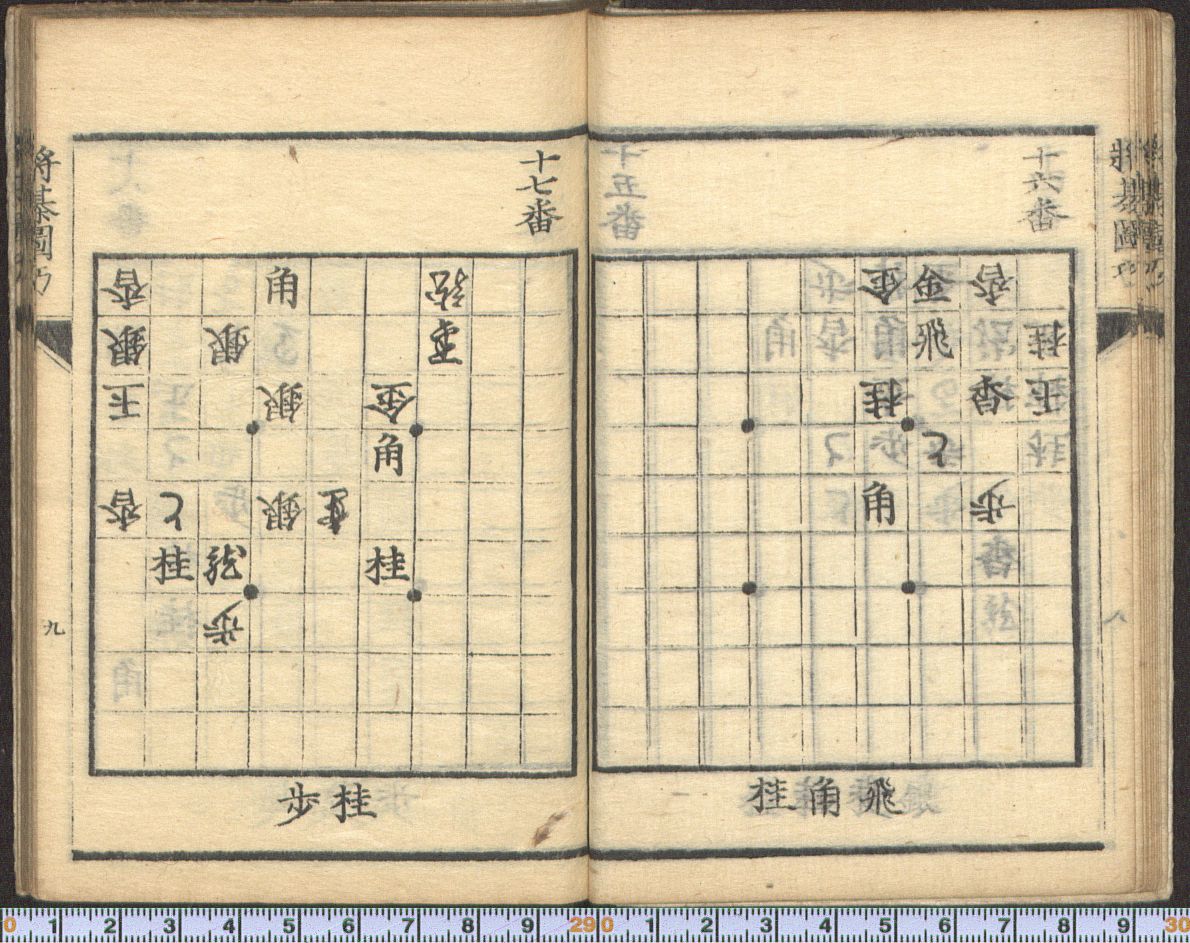 将棊圖巧
十六番
金 金 香
飛 桂
桂 香 玉
と
角 歩
飛角桂
十七番
香 角
銀 銀
玉 銀 金
角
香 と 銀
桂 桂
歩
桂歩
将棊圖巧
九
0 1 2 3 4 5 6 7 8 9 29 0 1 2 3 4 5 6 7 8 9 30